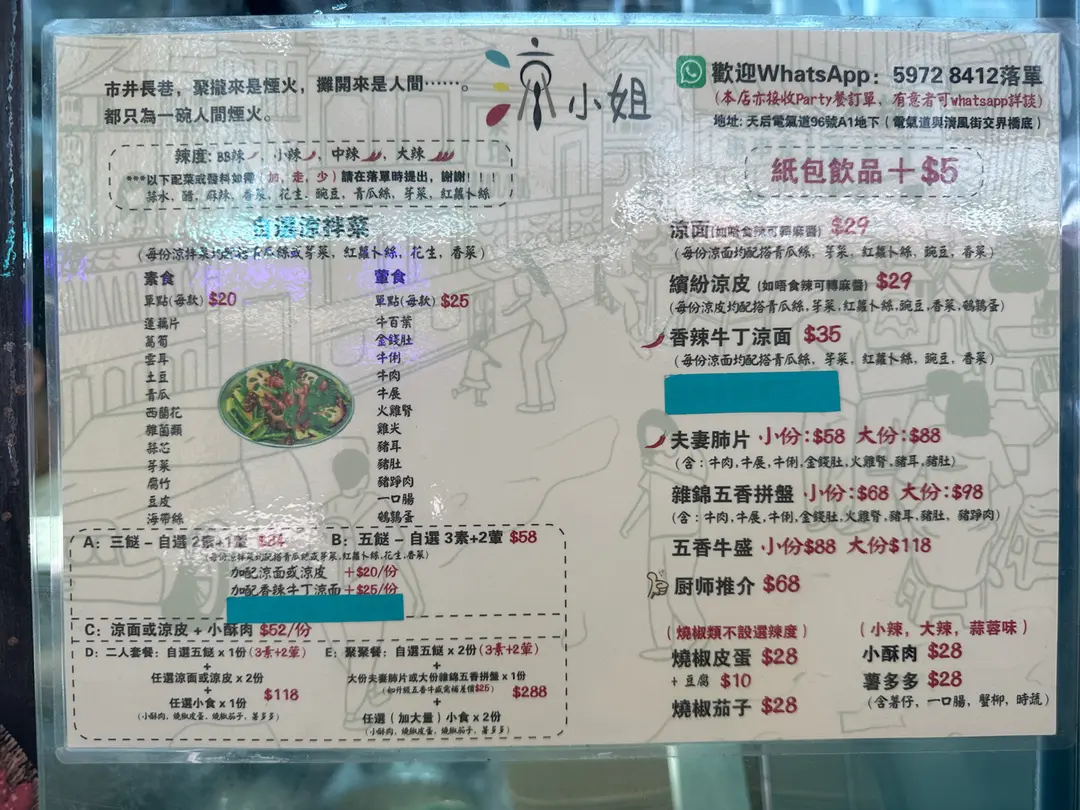 市井長巷，聚攏來是煙火，攤開來是人間……。
都只為一碗人間煙火。
涼小姐
歡迎WhatsApp：5972 8412落單
(本店亦接收Party餐訂單，有意者可whatsapp詳談)
地址: 天后電氣道96號A1地下 ( 電氣道與清風街交界橋底 )
辣度: BB辣 小辣 中辣 大辣
***以下配菜或醬料如需 (加，走，少) 請在落單時提出，謝謝！！！
蒜水，醋，麻辣，香菜，花生，豌豆，青瓜絲，芽菜，紅蘿卜絲
紙包飲品＋$5
自選涼拌菜
(每份涼拌菜均配搭青瓜絲或芽菜，紅蘿卜絲，花生，香菜)
素食
單點(每款) $20
蓮藕片
萵筍
雲耳
土豆
青瓜
西蘭花
雜菌類
蒜芯
芽菜
腐竹
豆皮
海帶絲
葷食
單點(每款) $25
牛百葉
金錢肚
牛脷
牛肉
牛展
火雞腎
雞尖
豬耳
豬肚
豬踭肉
一口腸
鵪鶉蛋
A：三餸－自選 2素+1葷 $34
B：五餸－自選 3素+2葷 $58
(每份涼拌菜均配搭青瓜絲或芽菜,紅蘿卜絲,花生,香菜)
加配涼面或涼皮 +$20/份
加配香辣牛丁涼面 +$25/份
C：涼面或涼皮 + 小酥肉 $52/份
D：二人套餐：自選五餸 x 1份 (3素+2葷)
+
任選涼面或涼皮 x 2份
+
任選小食 x 1份
$118
(小酥肉，燒椒皮蛋，燒椒茄子，薯多多)
E：聚聚餐：自選五餸 x 2份 (3素+2葷)
+
大份夫妻肺片或大份雜錦五香拼盤 x 1份
(如升級五香牛盛需補差價$25)
$288
+
任選（加大量）小食 x 2份
(小酥肉，燒椒皮蛋，燒椒茄子，薯多多)
涼面(如唔食辣可轉麻醬) $29
(每份涼面均配搭青瓜絲，芽菜，紅蘿卜絲，豌豆，香菜)
繽紛涼皮 (如唔食辣可轉麻醬) $29
(每份涼皮均配搭青瓜絲,芽菜,紅蘿卜絲,豌豆,香菜,鵪鶉蛋)
香辣牛丁涼面 $35
(每份涼面均配搭青瓜絲，芽菜，紅蘿卜絲，豌豆，香菜)
夫妻肺片 小份:$58 大份:$88
(含：牛肉,牛展,牛脷,金錢肚,火雞腎,豬耳,豬肚)
雜錦五香拼盤 小份:$68 大份:$98
(含：牛肉,牛展,牛脷,金錢肚,火雞腎,豬耳,豬肚，豬踭肉)
五香牛盛 小份$88 大份$118
厨师推介 $68
(燒椒類不設選辣度)
燒椒皮蛋 $28
+ 豆腐 $10
燒椒茄子 $28
(小辣，大辣，蒜蓉味)
小酥肉 $28
薯多多 $28
(含薯仔，一口腸，蟹柳，時蔬)